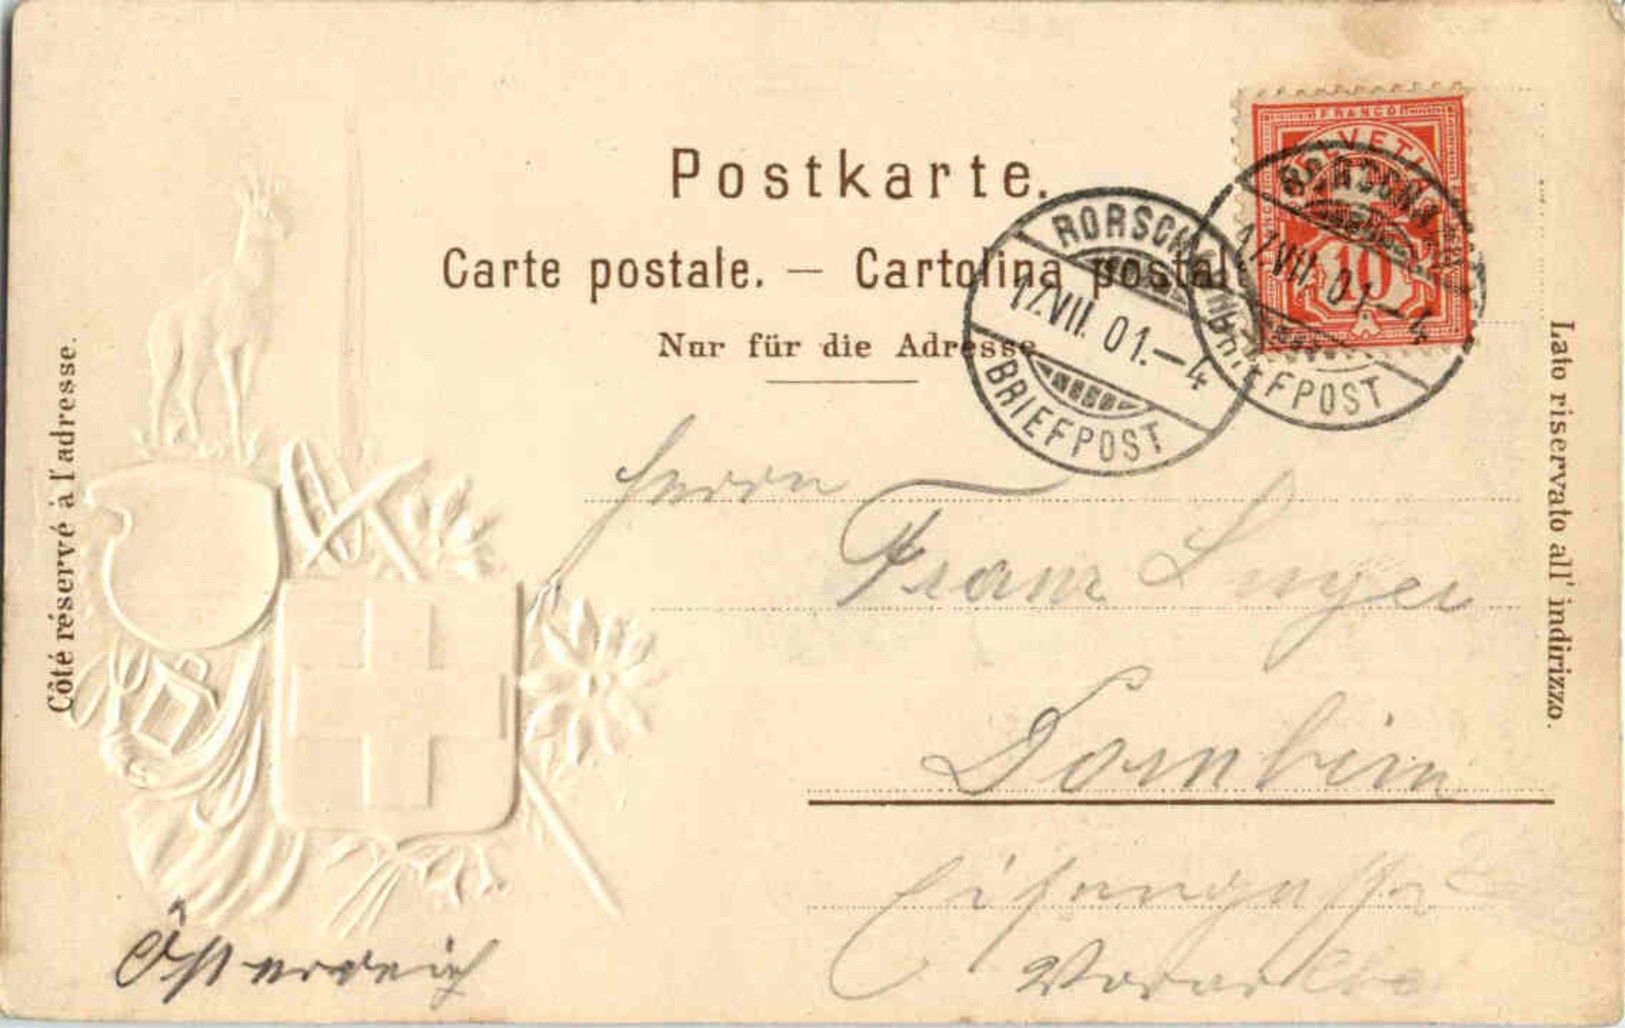 Postkarte.
Carte postale. — Cartolina postal
Nur für die Adresse
Côté réservé à l'adresse.
Lato riservato all' indirizzo.
FRANCO
HELVETIA
10
RORSCHACH
17.VII. 01.–4
BRIEFPOST
RORSCHACH
17.VII. 01.–4
BRIEFPOST
Herrn
Franz
Dornbirn
Eisengasse
Vorarlbg
Österreich